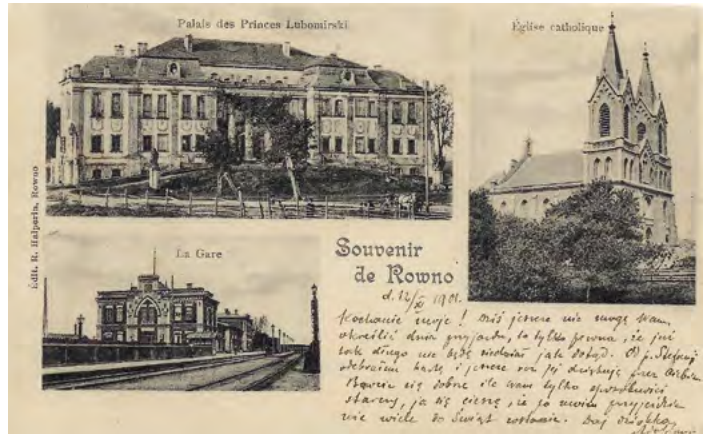 Palais des Princes Lubomirski
Église catholique
Édit. R. Halperin, Rowno
La Gare
Souvenir
de Rowno
d. 12/XI 1901.
Kochanie moje! Dziś jeszcze nie mogę Wam
określić dnia przyjazdu, to tylko pewna, że już
tak długo nie będę siedział jak dotąd. Od p. Stefanji
odebrałem kartę i jeszcze raz jej dziękuję przez Ciebie.
Bawcie się dobrze ile wam tylko sposobności
starczy, ja się cieszę, że po moim przyjeździe
nie wiele do Świąt zostanie. Daj